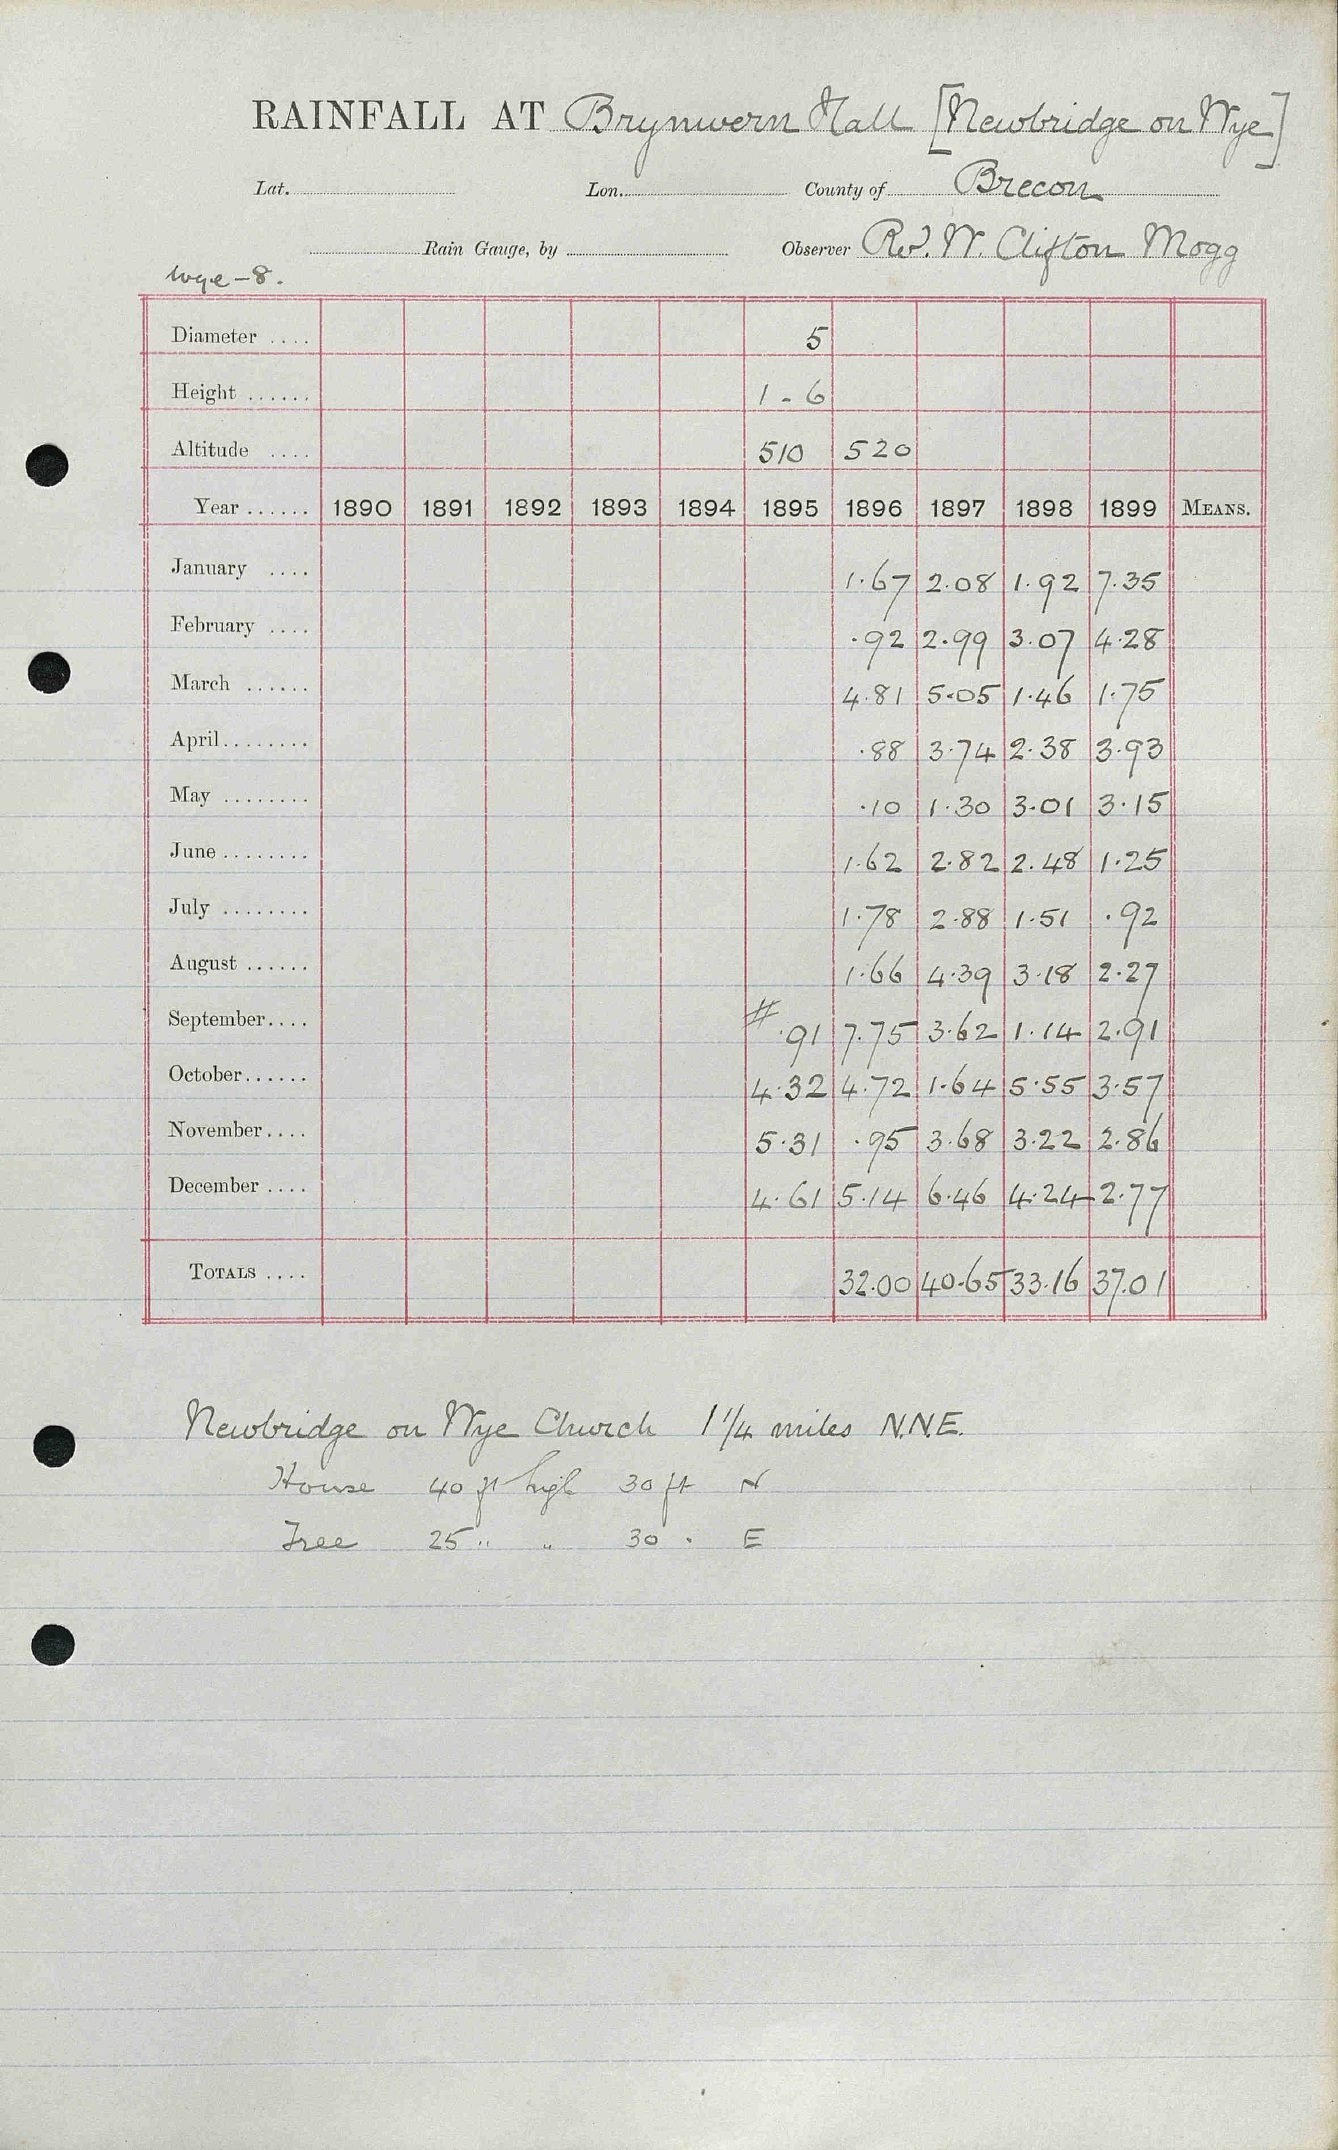 RAINFALL AT Brynwern Hall [Newbridge on Wye]
Lat. Lon. County of Brecon
Rain Gauge, by Observer Rev. W. Clifton Mogg
Wye-8.
Diameter .... 5
Height ...... 1-6
Altitude .... 510 520
Year ...... 1890 1891 1892 1893 1894 1895 1896 1897 1898 1899 MEANS.
January .... 1.67 2.08 1.92 7.35
February .... .92 2.99 3.07 4.28
March ...... 4.81 5.05 1.46 1.75
April........ .88 3.74 2.38 3.93
May ........ .10 1.30 3.01 3.15
June ........ 1.62 2.82 2.48 1.25
July ........ 1.78 2.88 1.51 .92
August ...... 1.66 4.39 3.18 2.27
September.... # .91 7.75 3.62 1.14 2.91
October...... 4.32 4.72 1.64 5.55 3.57
November.... 5.31 .95 3.68 3.22 2.86
December .... 4.61 5.14 6.46 4.24 2.77
TOTALS .... 32.00 40.65 33.16 37.01
Newbridge on Wye Church 1 1/4 miles N.N.E.
House 40 ft high 30 ft N
Tree 25 " " 30 . E